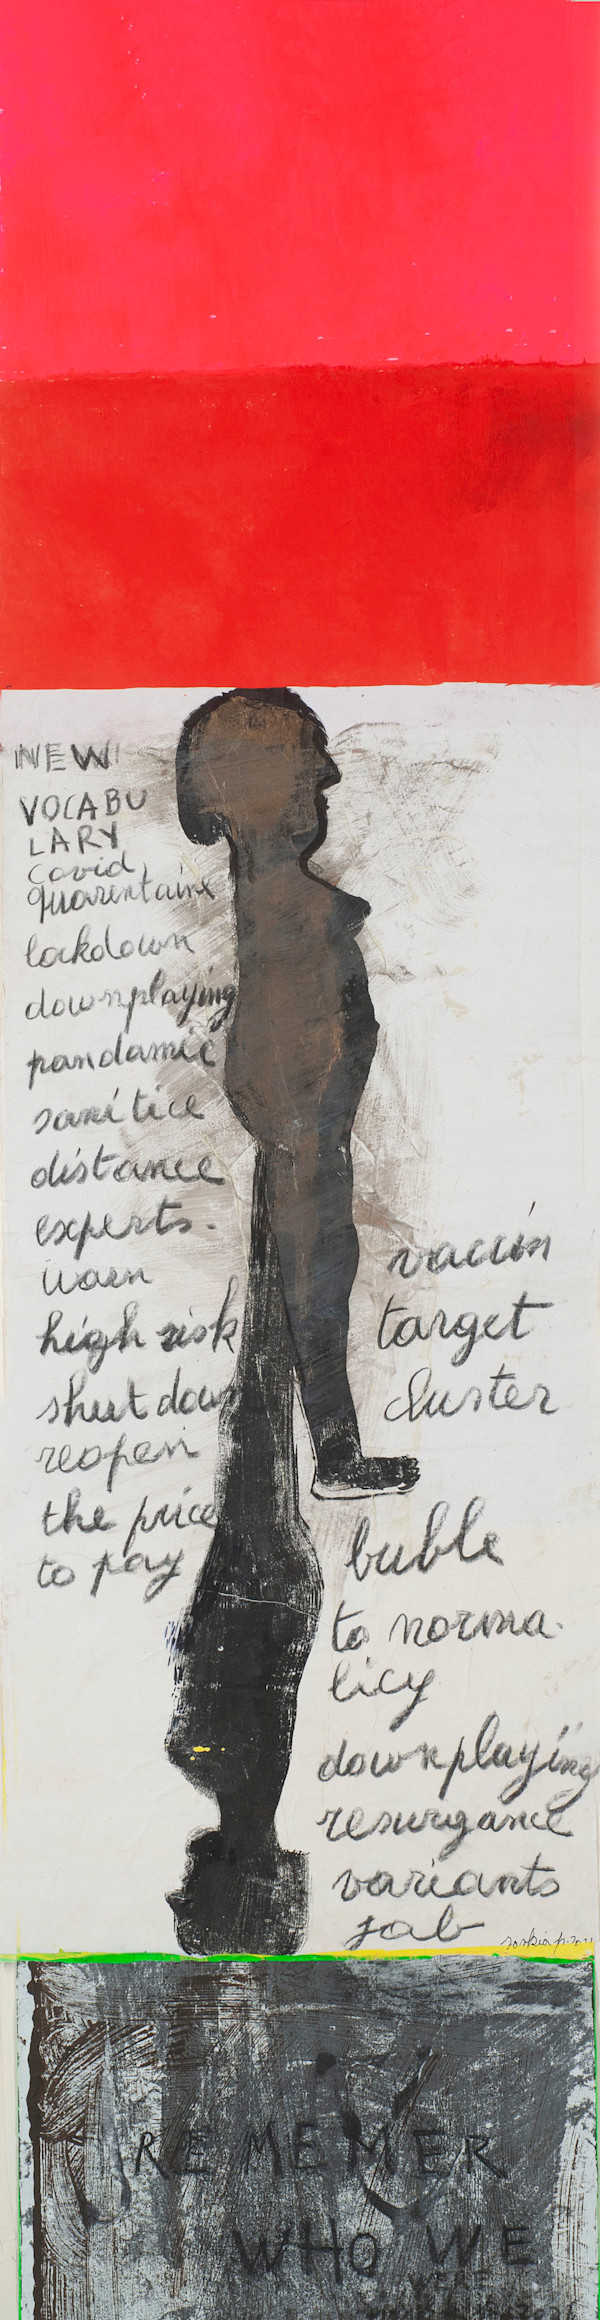 NEW
VOCABU
LARY
covid
quarentaine
lockdown
downplaying
pandamic
sanitice
distance
experts.
warn
high risk
shut down
reopen
the price
to pay
vaccin
target
cluster
buble
to norma.
licy
downplaying
resurgance
variants
jab
saskia p. 2021
REMEMER
WHO WE
WERE